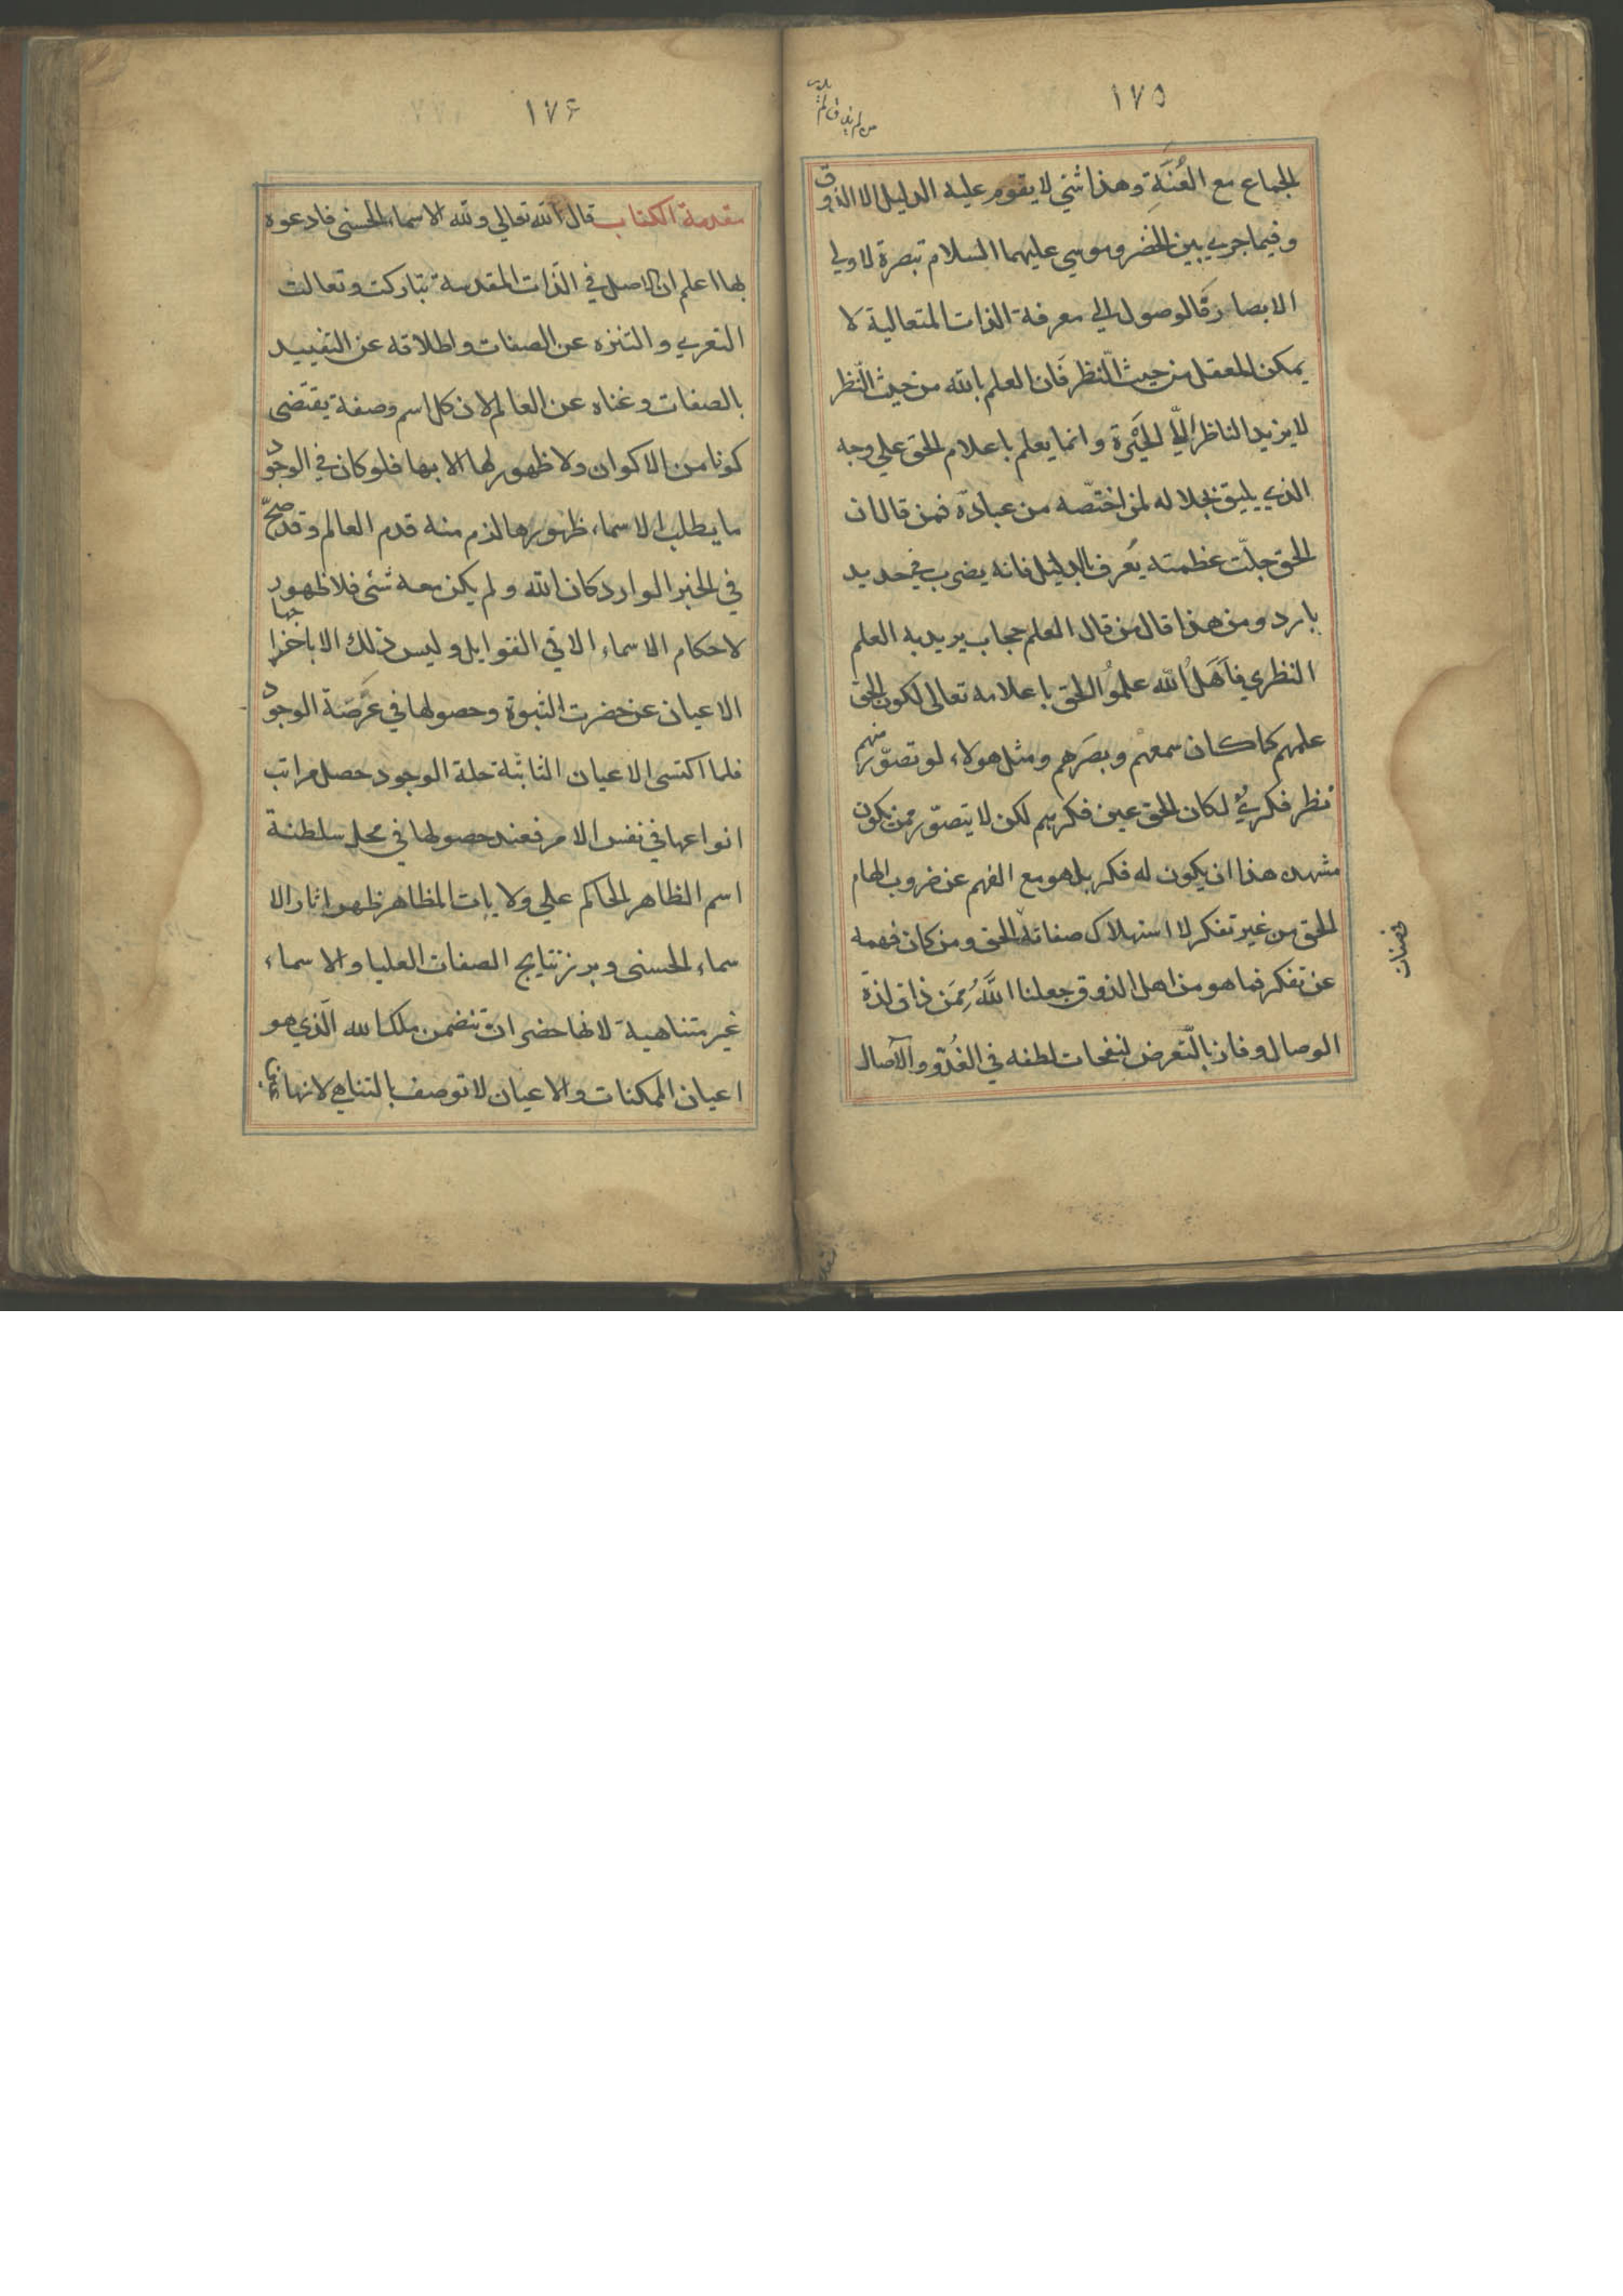 ١٧٥
من لم يذق لم
الجماع مع العُنَّةِ وهذا شئ لا يقوم عليه الدليل الا الذوق
و فيما جري بين الخضر و موسي عليهما السلام تبصرة لاولي
الابصار فالوصول الي معرفة الذات المتعالية لا
يمكن للعقل من حيث النّظر فان العلم بالله من حيث النّظر
لا يزيد الناظر الّا الحَيْرة و انما يعلم باعلام الحق علي وجه
الذي يليق بجلاله لمن اختصّه من عباده فمن قال ان
الحق جلّت عظمته يُعرف بالدليل فانه يضرب في حديد
بارد و من هذا قال من قال العلم حجاب يريد به العلم
النظري فاَهَلُ الله علموُا الحق باعلامه تعالى لكون الحق
علمهم كما كان سمعهم و بصَرهم و مثل هولاء لو تصوّر منهم
نظر فكريٌ لكان الحق عين فكرهم لكن لا يتصوّر ممن يكون
مشهده هذا ان يكون له فكر بل هو مع الفهم عن ضروب الهام
الحق من غير تفكر لا استهلاك صفاته الحق و من كان فهمه
عن تفكر فما هو من اهل الذوق جعلنا اللَّهُ مِمَن ذاق لذة
الوصال و فاز بالتّعرض لنفحات لطفه في الغُدّو و الآصال
١٧۶
مقدمة الكتاب قال الله تعالي ولله الاسماء الحسنى فادعوه
بها اعلم ان الاصل في الذّات المقدسة تباركت و تعالت
التعري و التنزه عن الصفات و اطلاقه عن التقييد
بالصفات و غناه عن العالم لان كل اسم و صفة يقتضى
كونا من الاكوان و لا ظهور لها الا بها فلو كان في الوجود
ما يطلب الاسماء ظهورها لزم منه قدم العالم و قد صحّ
في الخبر الوارد كان الله و لم يكن معه شئ فلا ظهور
لاحكام الاسماء الا في القوابل و ليس ذلك الا باخراجها
الاعيان عن حضرت الثبوة و حصولها في عَرَصَة الوجود
فلما اكتسى الاعيان الثابتة حلة الوجود حصل مراتب
انواعها في نفس الامر فعند حصولها في محل سلطنة
اسم الظاهر الحاكم علي ولايات المظاهر ظهر اثار الا
سماء الحسنى و برز نتايج الصفات العليا و الاسماء
غير متناهية لانها حضرات تتضمن ملك الله الّذي هو
اعيان الممكنات و الاعيان لا توصف بالتناهي لانها